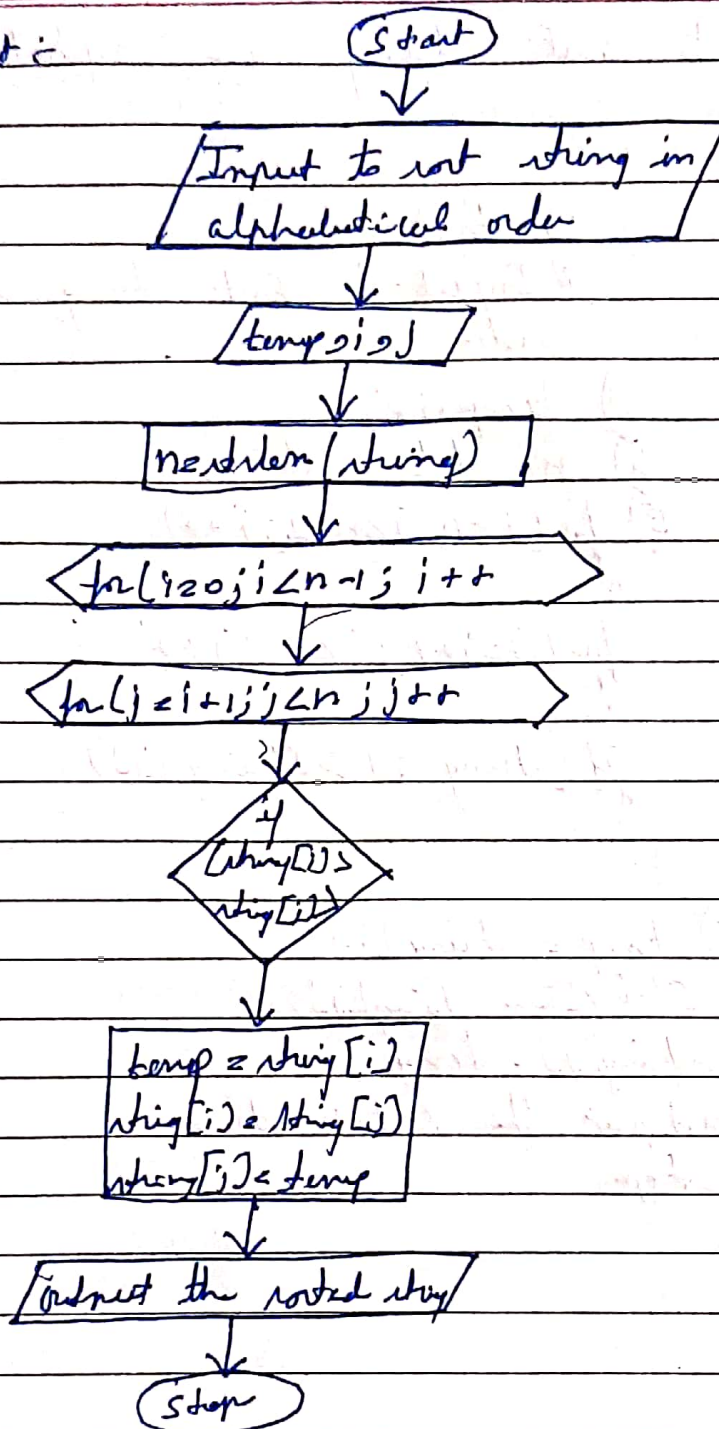 Start
Input to sort string in
alphabetical order
temp, i, j
n=strlen(string)
for(i=0; i<n-1; i++
for(j=i+1; j<n; j++
if
(string[i]>
strig[j])
temp = string[i]
strig[i] = string[j]
string[j] = temp
output the sorted string
Stop